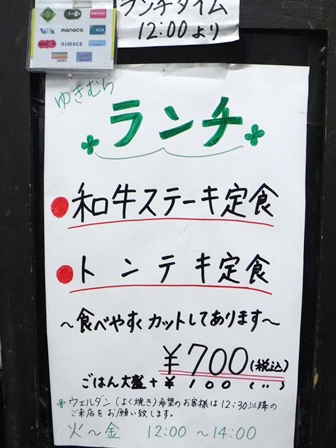 ランチタイム
12:00より
manaca
nimoca
ゆきむら
ランチ
●和牛ステーキ定食
●トンテキ定食
～食べやすくカットしてあります～
¥700(税込)
ごはん大盛+¥100(〃)
ウェルダン(よく焼き)希望のお客様は12:30以降の
ご来店をお願い致します。
火～金 12:00～14:00